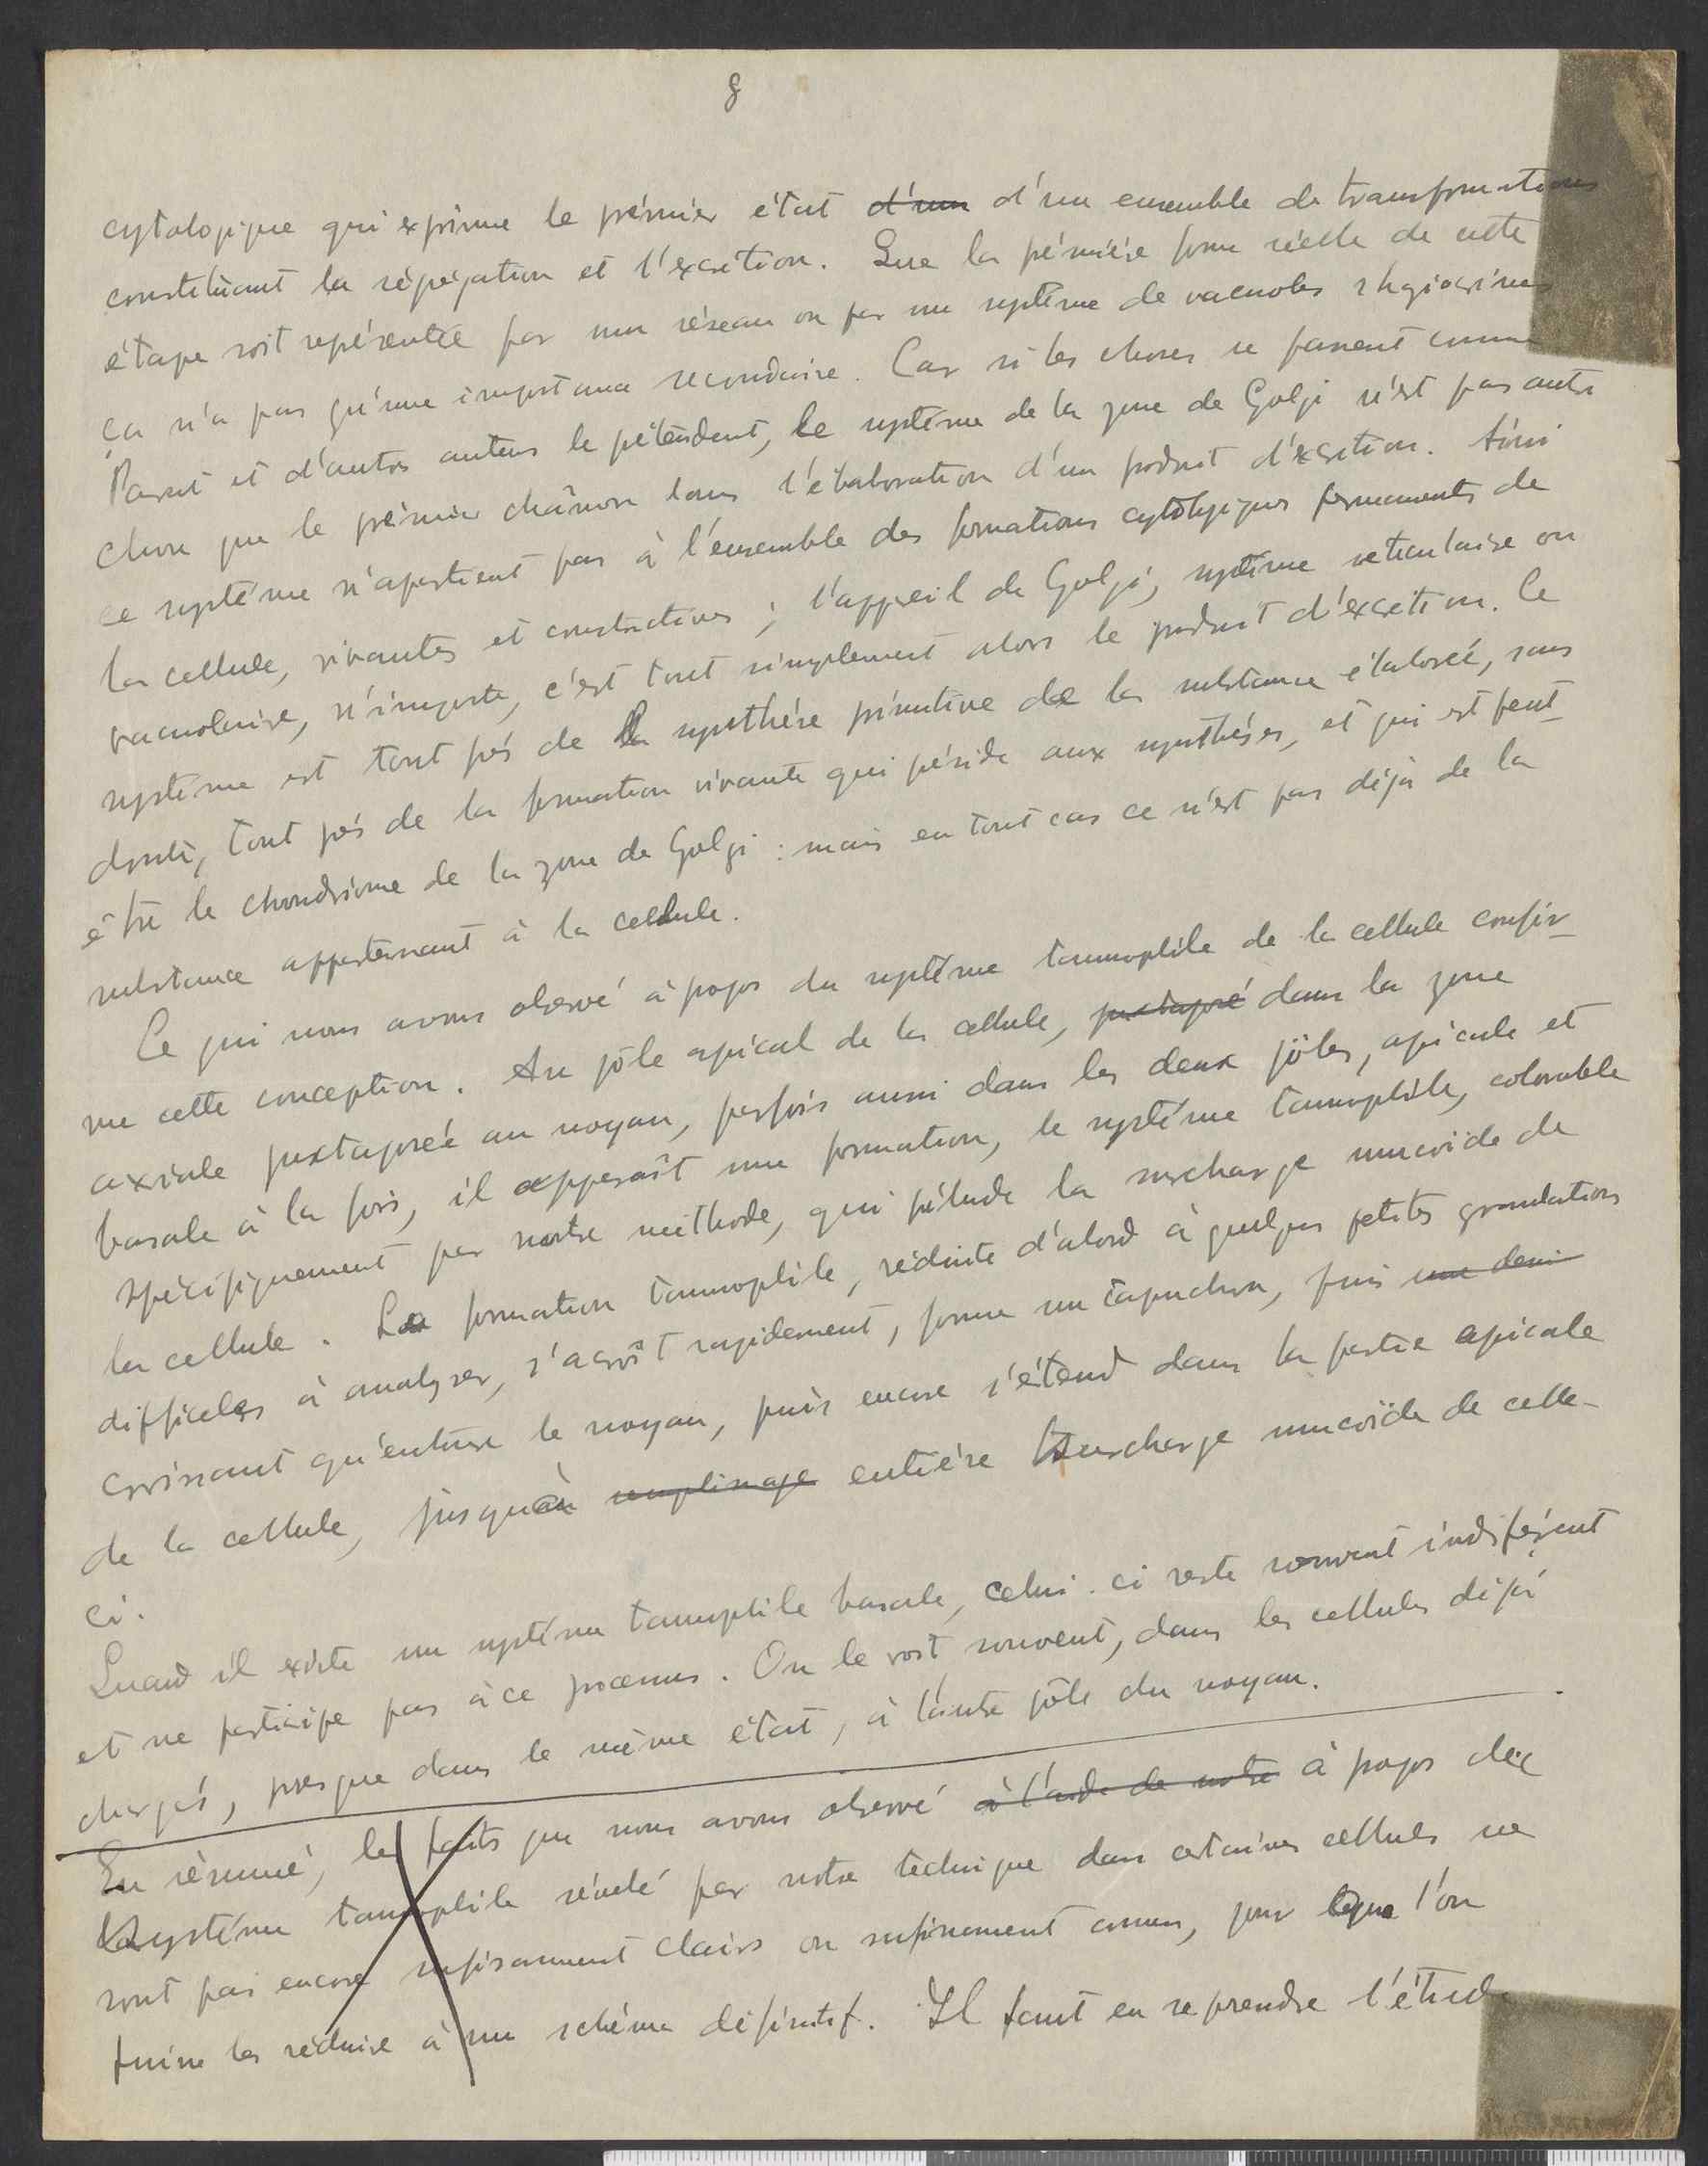 8
cytologique qui exprime le prémier état d'un d'un ensemble de transformations
constitùant la ségrégation et l'excrétion. Que la prémière forme réelle de cette
étape soit représentée par un réseau ou par un systême de vacuoles rhagiocrines
ça n'a pas qu'une importance secondaire. Car si les choses se passent comme
Parat et d'autres auteurs le prétendent, le systéme de la zone de Golgi n'est pas autre
chose que le prémier chaînon dans l'élaboration d'un produit d'excrétion. Ainsi
ce systéme n'apartient pas à l'ensemble des formations cytologiques permanents de
la cellule, vivantes et constructives; l'appareil de Golgi, systéme reticulaire ou
vacuolaire, n'importe, c'est tout simplement alors le produit d'excrétion. Ce
systéme est tout prés de la synthése primitive de la substance élaborée, sans
doute, tout prés de la formation vivante qui préside aux synthéses, et qui est peut-
être le chondriome de la zone de Golgi: mais en tout cas ce n'est pas déjà de la
substance appartenant à la cellule.
Ce qui nous avons observé à propos du systéme tannophile de la cellule confir-
me cette conception. Au pôle apical de la cellule, juxtaposé dans la zone
axiale juxtaposée au noyau, parfois aussi dans les deux pôles, apicale et
basale à la fois, il apparaît une formation, le systéme tannophile, colorable
spécifiquement par nostre méthode, qui prélude la surcharge mucoïde de
la cellule. La formation tannophile, réduite d'abord à quelques petites granulations
difficeles à analyser, s'acroît rapidement, forme un capuchon, puis une demi
croissant qu'entoure le noyau, puis encore s'étend dans la partie apicale
de la cellule, jusqu'au remplissage entière surcharge mucoïde de celle-
ci.
Quand il existe un systéme tannophile basale, celui-ci reste souvent indiférent
et ne participe pas à ce processus. On le voit souvent, dans les cellules déjà
chargés, presque dans le même état, à l'autre pôle du noyau.
En résumé, les faits que nous avons observé à l'aide de notre à propos de
systéme tannophile révelé par notre technique dans certaines cellules ne
sont pas encore sufisamment clairs ou sufisamment connus, pour que l'on
puisse les réduire à un schéma définitif. Il faut en reprendre l'étude